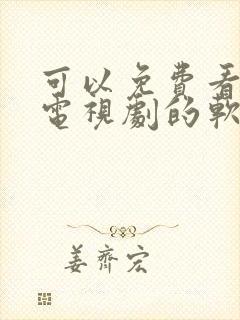 可以免費看
電視劇的軟
姜齊宏